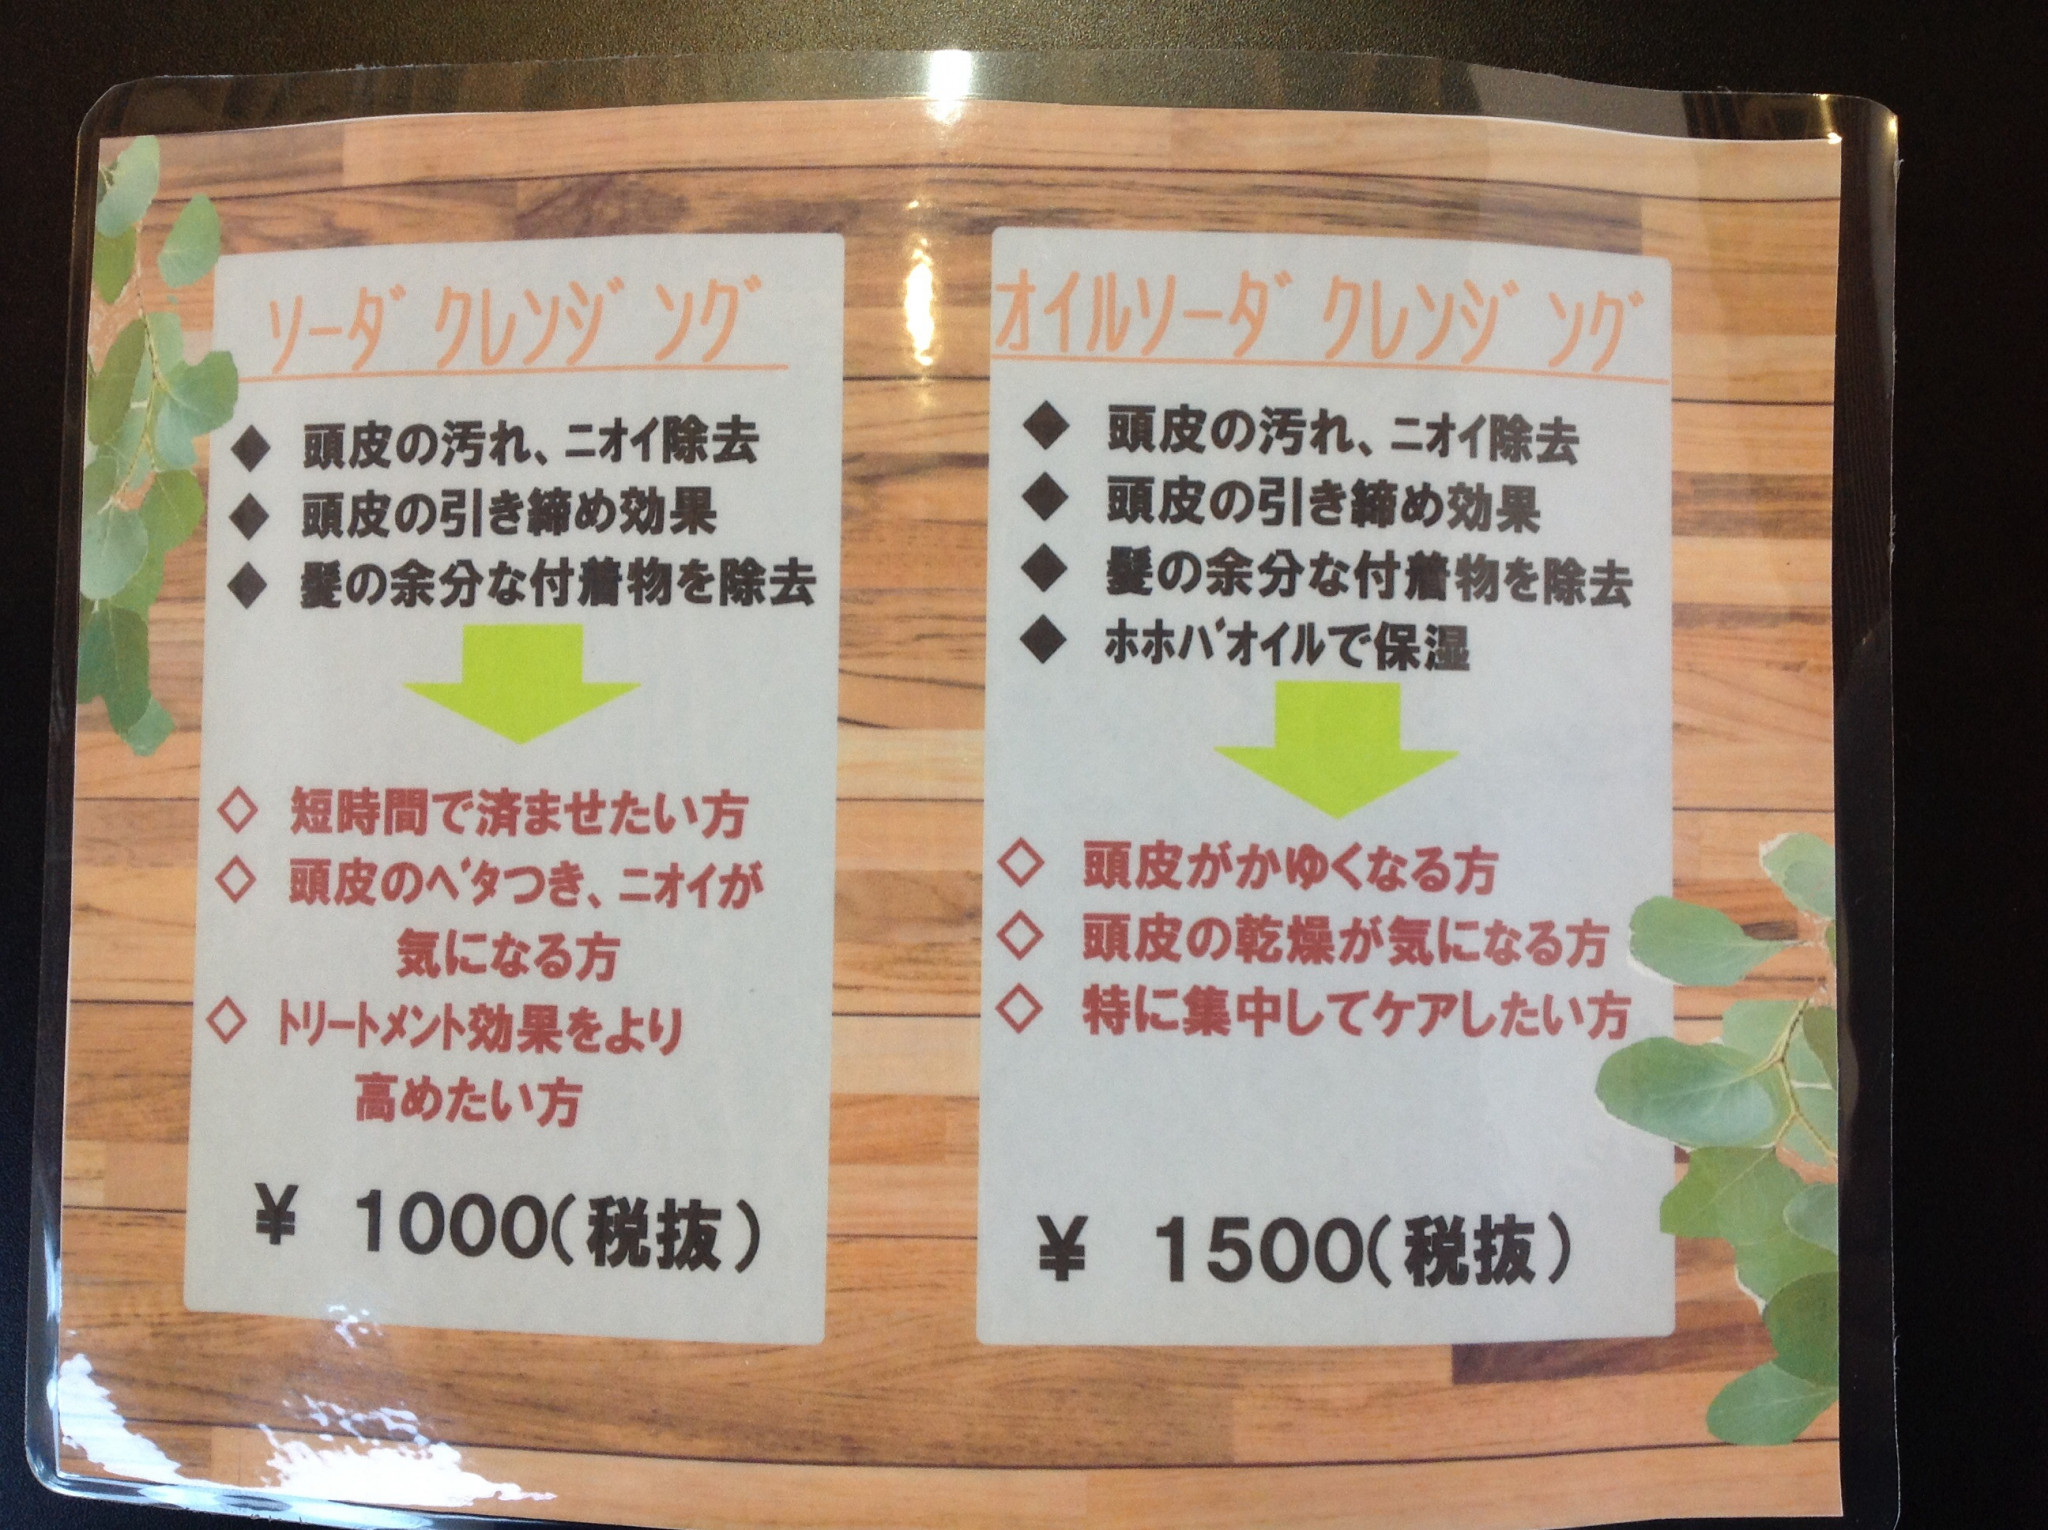 ソーダクレンジング
◆ 頭皮の汚れ、ニオイ除去
◆ 頭皮の引き締め効果
◆ 髪の余分な付着物を除去
◇ 短時間で済ませたい方
◇ 頭皮のベタつき、ニオイが
気になる方
◇ トリートメント効果をより
高めたい方
¥ 1000(税抜)
オイルソーダクレンジング
◆ 頭皮の汚れ、ニオイ除去
◆ 頭皮の引き締め効果
◆ 髪の余分な付着物を除去
◆ ホホバオイルで保湿
◇ 頭皮がかゆくなる方
◇ 頭皮の乾燥が気になる方
◇ 特に集中してケアしたい方
¥ 1500(税抜)